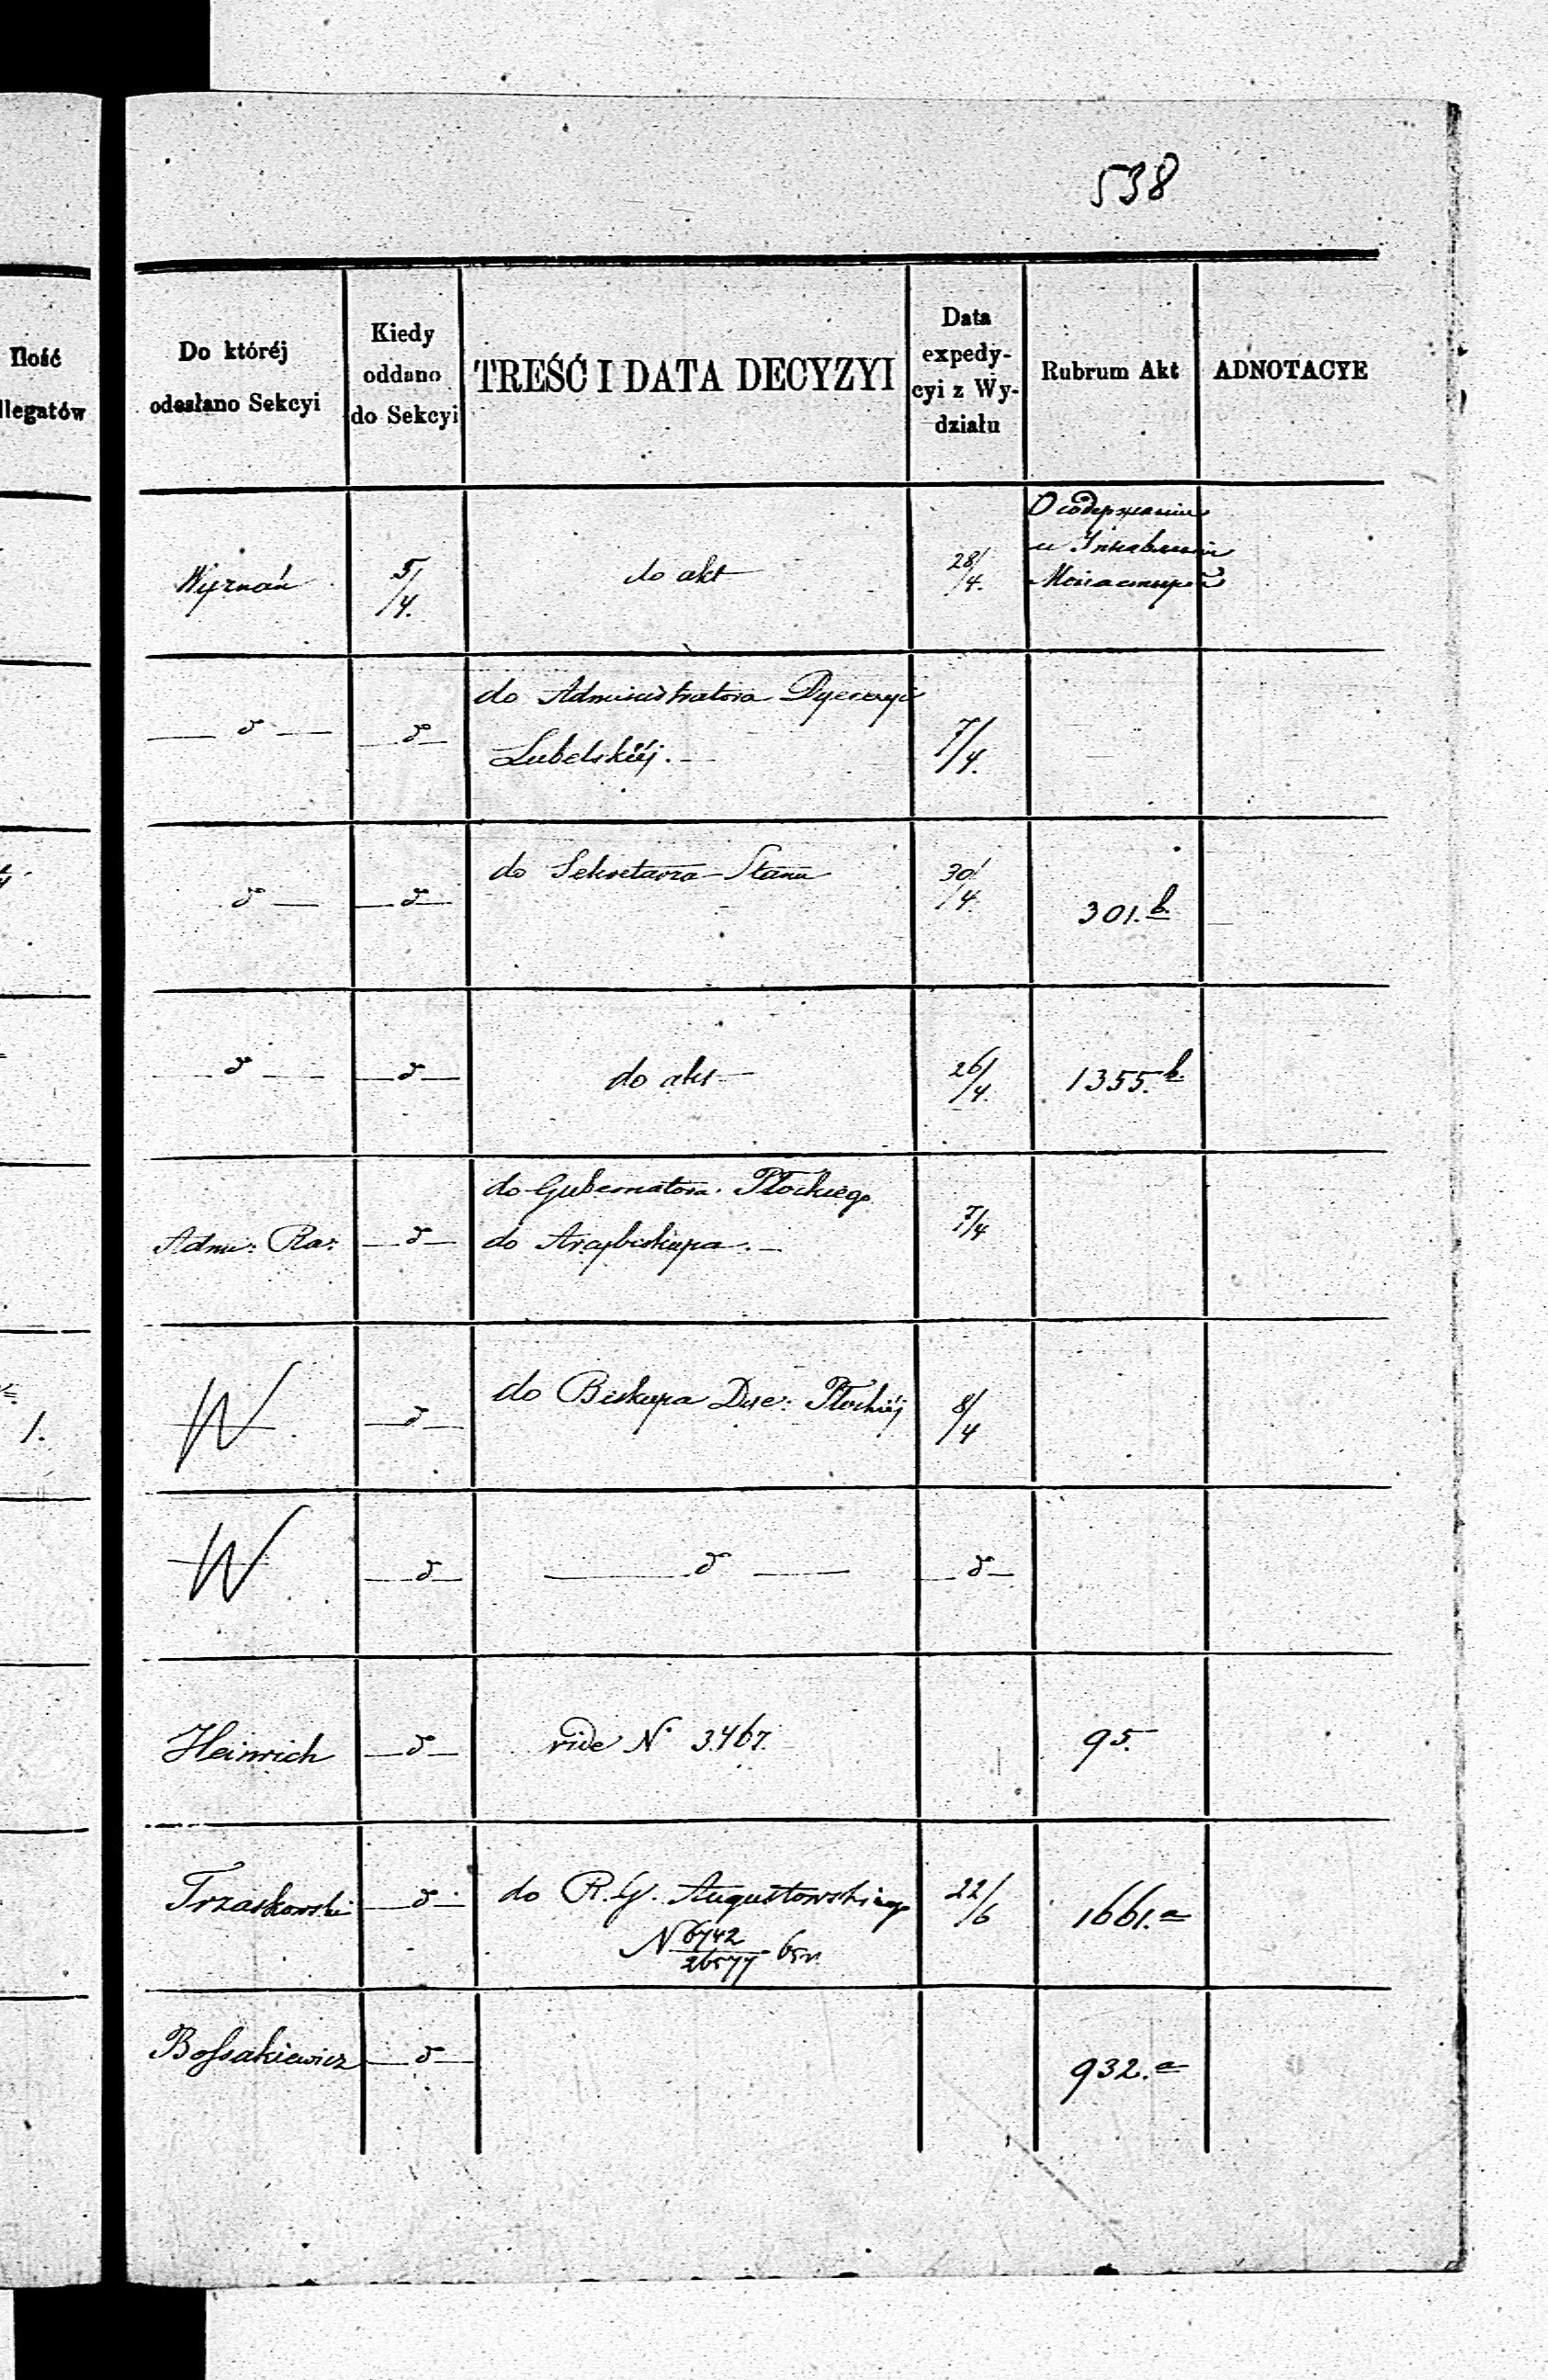 538
Ilość
llegatów
Do któréj
odesłano Sekcyi
Kiedy
oddano
do Sekcyi
TREŚĆ I DATA DECYZYI
Data
expedy-
cyi z Wy-
działu
Rubrum Akt
ADNOTACYE
5/4.
do akt
28/4.
О содержании
и
Монастырей
— d — — d —
do Administratora Dyecezyi
Lubelskiéj. —
7/4.
d — — d —
do Sekretarza Stanu
30/4.
301. b.
— d — — d —
do akt
26/4.
1355. b.
Adm: Ra: — d —
do Gubernatora Płockiego
do Arcybiskupa. —
7/4
1.
W. — d —
do Biskupa Dye: Płockiéj
8/4
W — d — — d — — d —
Heinrich — d — vide N° 3467. 95.
Trzaskowski — d — do R. G. Augustowskiego 22/6 1661. a
N 6742/26577
Bossakiewicz — d — 932. a